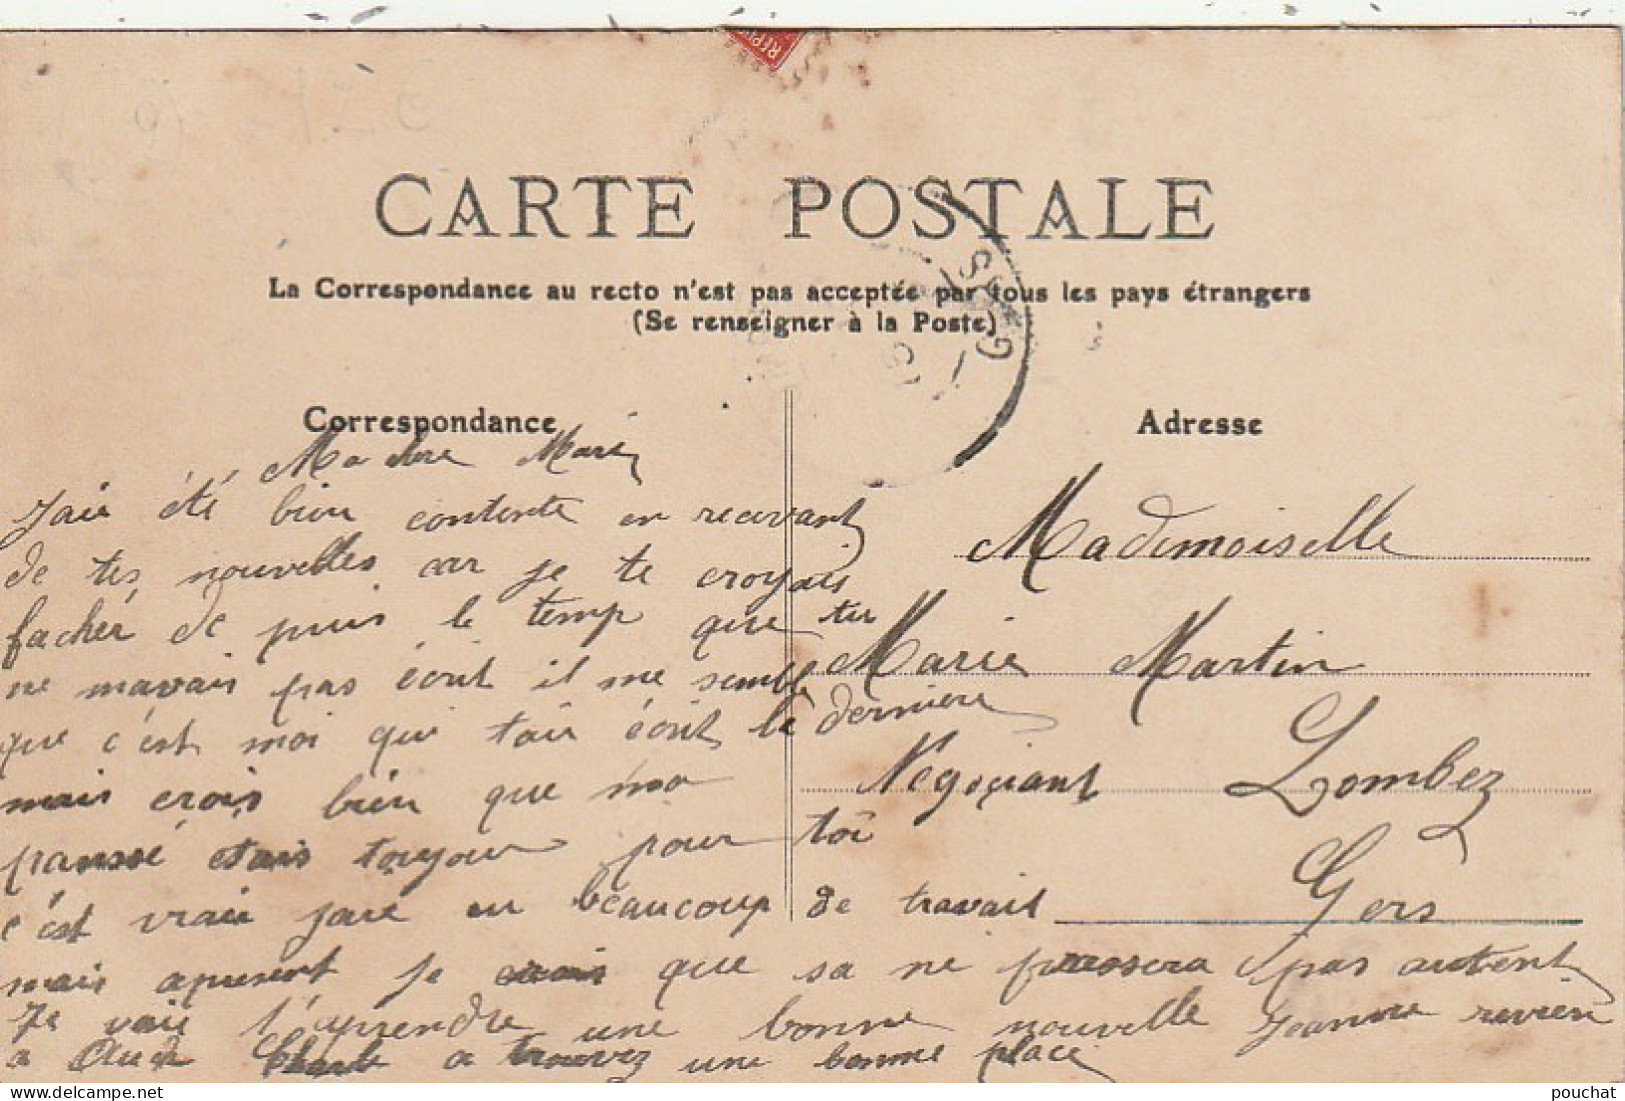 REPU
CARTE POSTALE
La Correspondance au recto n'est pas acceptée par tous les pays étrangers
(Se renseigner à la Poste)
GERS
Correspondance
Ma chère Marie
Jaie été bien contente en recevant
de tes nouvelles car je te croyais
faché de puis le temp que tu
ne mavais pas écrit il me semble
que c'est moi qui taie écrit la dernière
mais crois bien que ma
panssé etais toujour pour toi
c'est vraie jave eu beaucoup de travail
mais apresent je crois que sa ne prassera pas autent
Je vaie t'aprendre une bonne nouvelle Jeanne revien
a Auch Charle a trouvez une bonne place
Adresse
Mademoiselle
Marie Martin
Négoçiant Lombez
Gers
pouchat